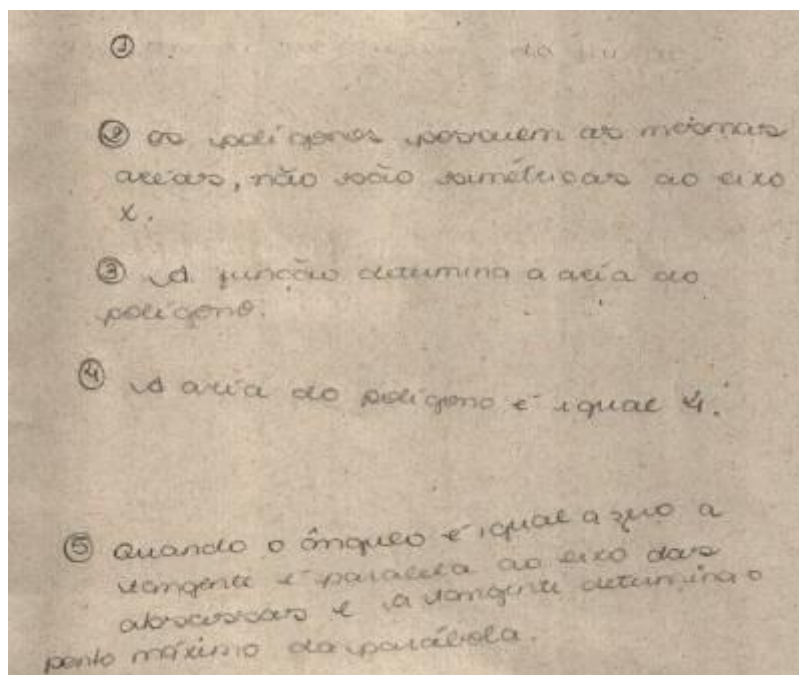 ①
② os polígonos possuem as mesmas
areas, não são simétricas ao eixo
x.
③ A função determina a área do
polígono.
④ A area do polígono é igual 4.
⑤ Quando o ângulo é igual a zero a
tangente é paralela ao eixo das
abscissas e a tangente determina o
ponto máximo da parábola.